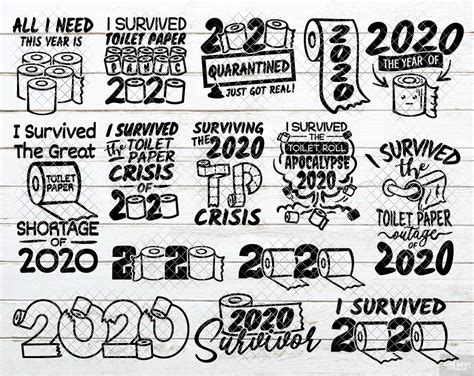 ALL I NEED
THIS YEAR IS
I SURVIVED
TOILET PAPER
PANIC
2020
2020
QUARANTINED
JUST GOT REAL!
2020
2020
THE YEAR OF
I Survived
The Great
TOILET
PAPER
SHORTAGE
OF
2020
I SURVIVED
the TOILET
PAPER
CRISIS
OF
2020
SURVIVING
THE 2020
TP
CRISIS
I SURVIVED
THE
TOILET ROLL
APOCALYPSE
2020
I SURVIVED
the
TOILET PAPER
outage
of
2020
2020
2020
2020
2020
Survivor
I SURVIVED
2020